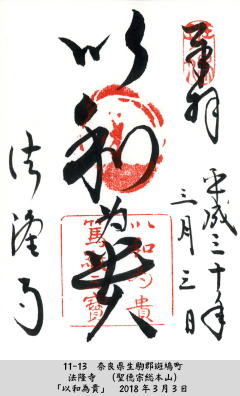 奉拝
平成三十年
三月三日
以和為貴
法隆寺
以和為貴
篤敬三寳
11-13 奈良県生駒郡斑鳩町
法隆寺 (聖徳宗総本山)
「以和為貴」 2018年3月3日